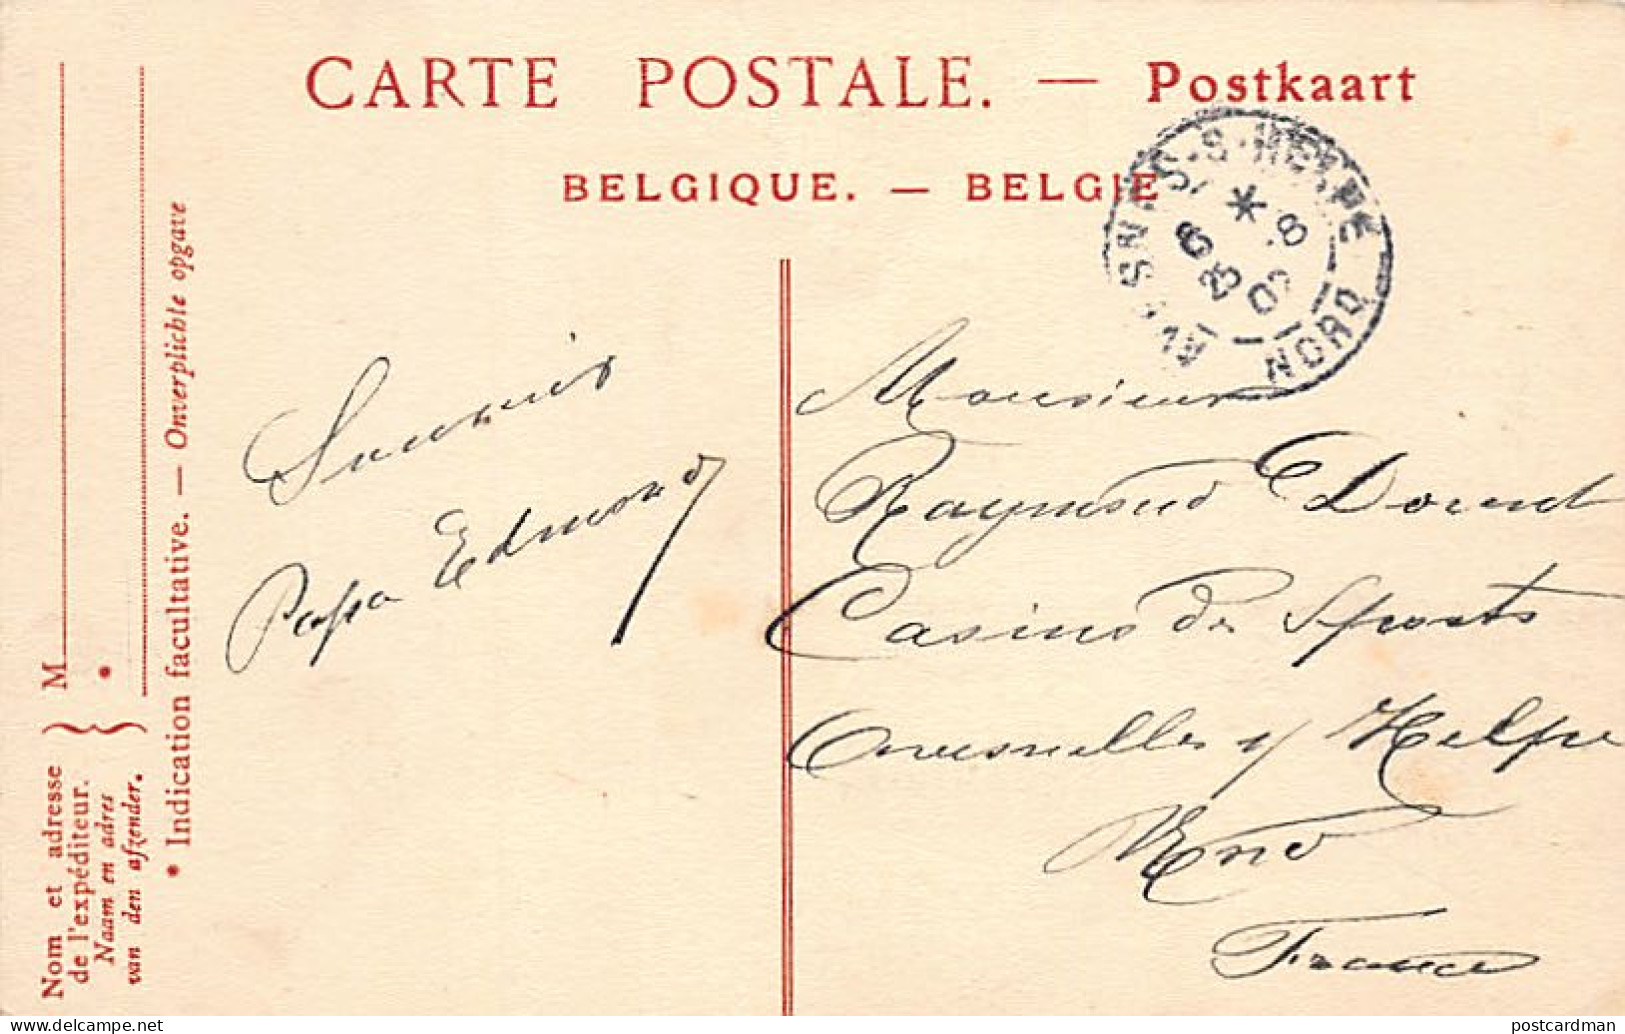 CARTE POSTALE. — Postkaart
BELGIQUE. — BELGIE
AVESNES-S-HELPE
6 * 8
25
NORD
Nom et adresse de l'expéditeur.
Naam en adres van den afzender.
M
*
* Indication facultative. — Onverplichte opgave
Souvenir
Papa Edmond
Monsieur
Raymond
Casino des Sports
Avesnelles s/ Helpe
Nord
France
postcardman